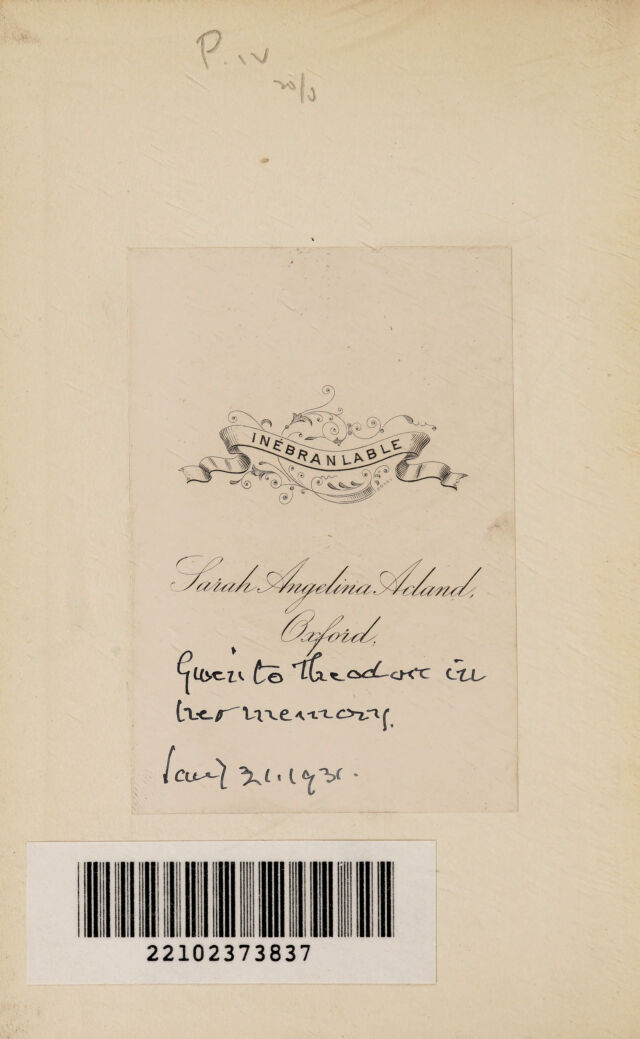 P. IV
20/
INÉBRANLABLE
Sarah Angelina Acland,
Oxford.
Given to Theodore in
her memory.
Jany 31. 1931.
22102373837